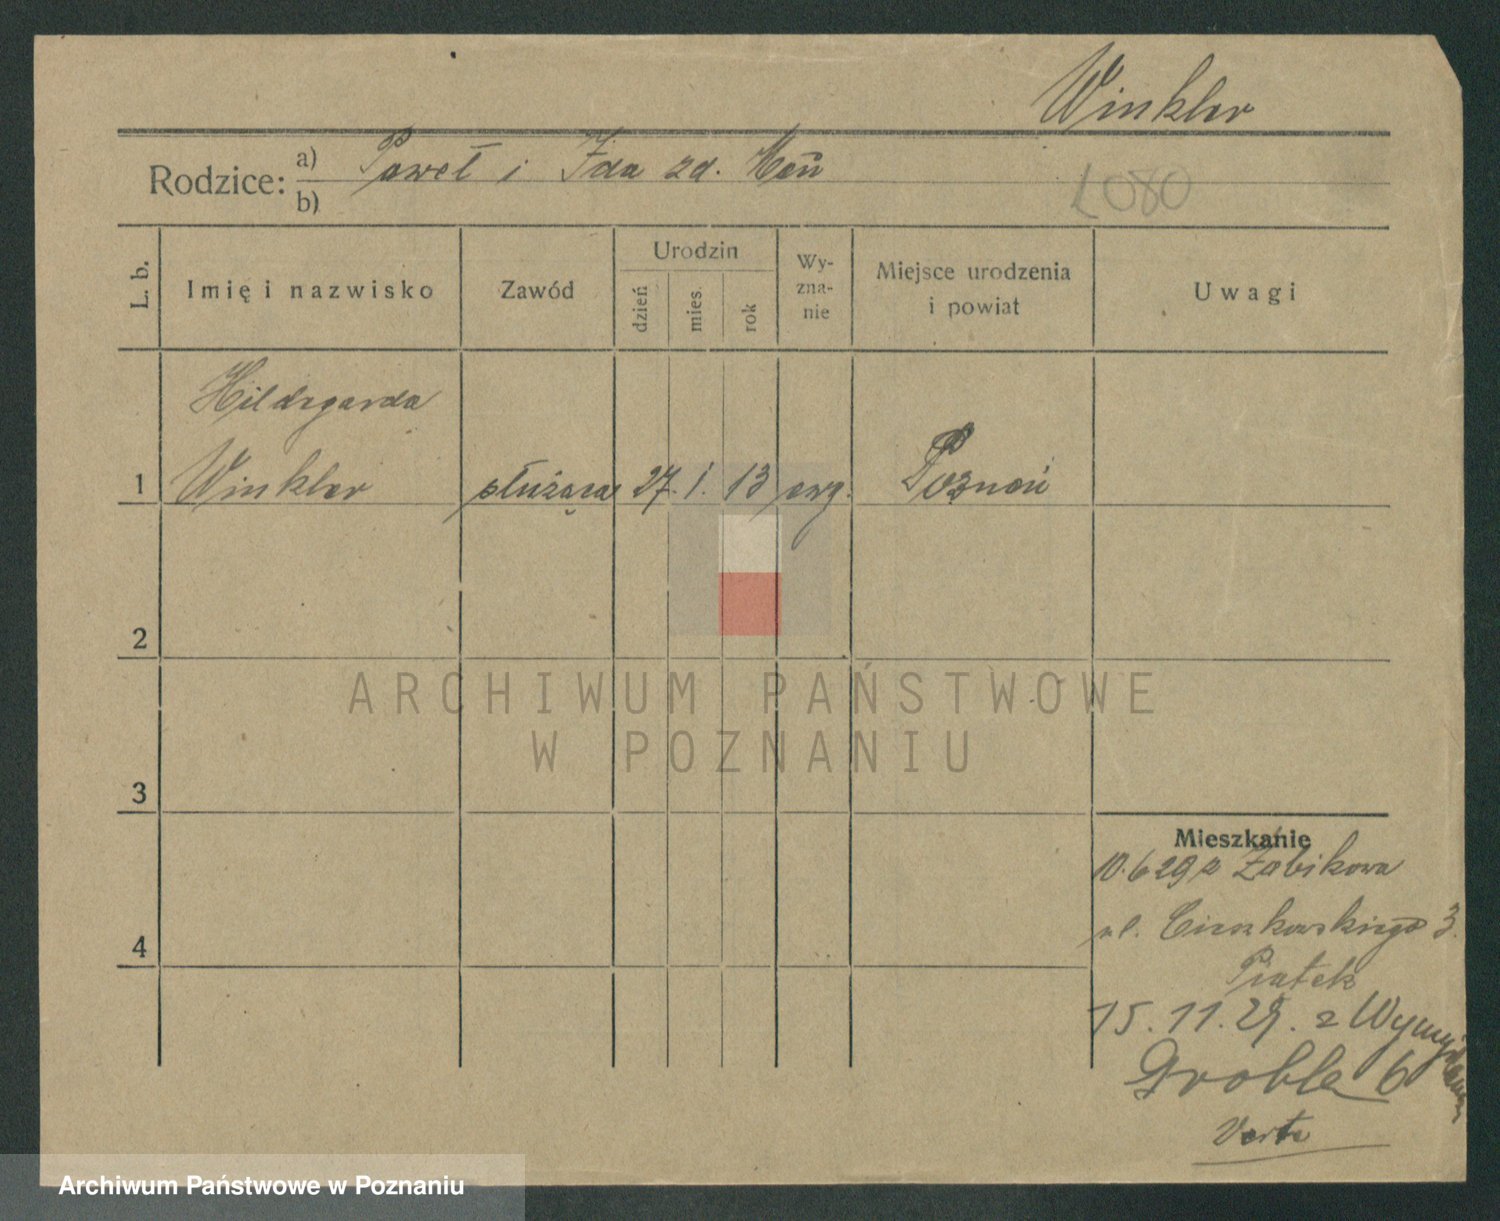 Winkler
Rodzice: a) Paweł i Ida zd.
b)
L080
L. b.
Imię i nazwisko
Zawód
Urodzin
dzień
mies.
rok
Wy-
zna-
nie
Miejsce urodzenia
i powiat
Uwagi
Hildegarda
1 Winkler służąca 27. 1. 13 ewg. Poznań
2
ARCHIWUM PAŃSTWOWE
W POZNANIU
3
Mieszkanie
10.6 29 z Żabikowa
4
ul. Cieszkowskiego 3.
Piątek
15. 11. 29. z
Grobla 6
Verte
Archiwum Państwowe w Poznaniu